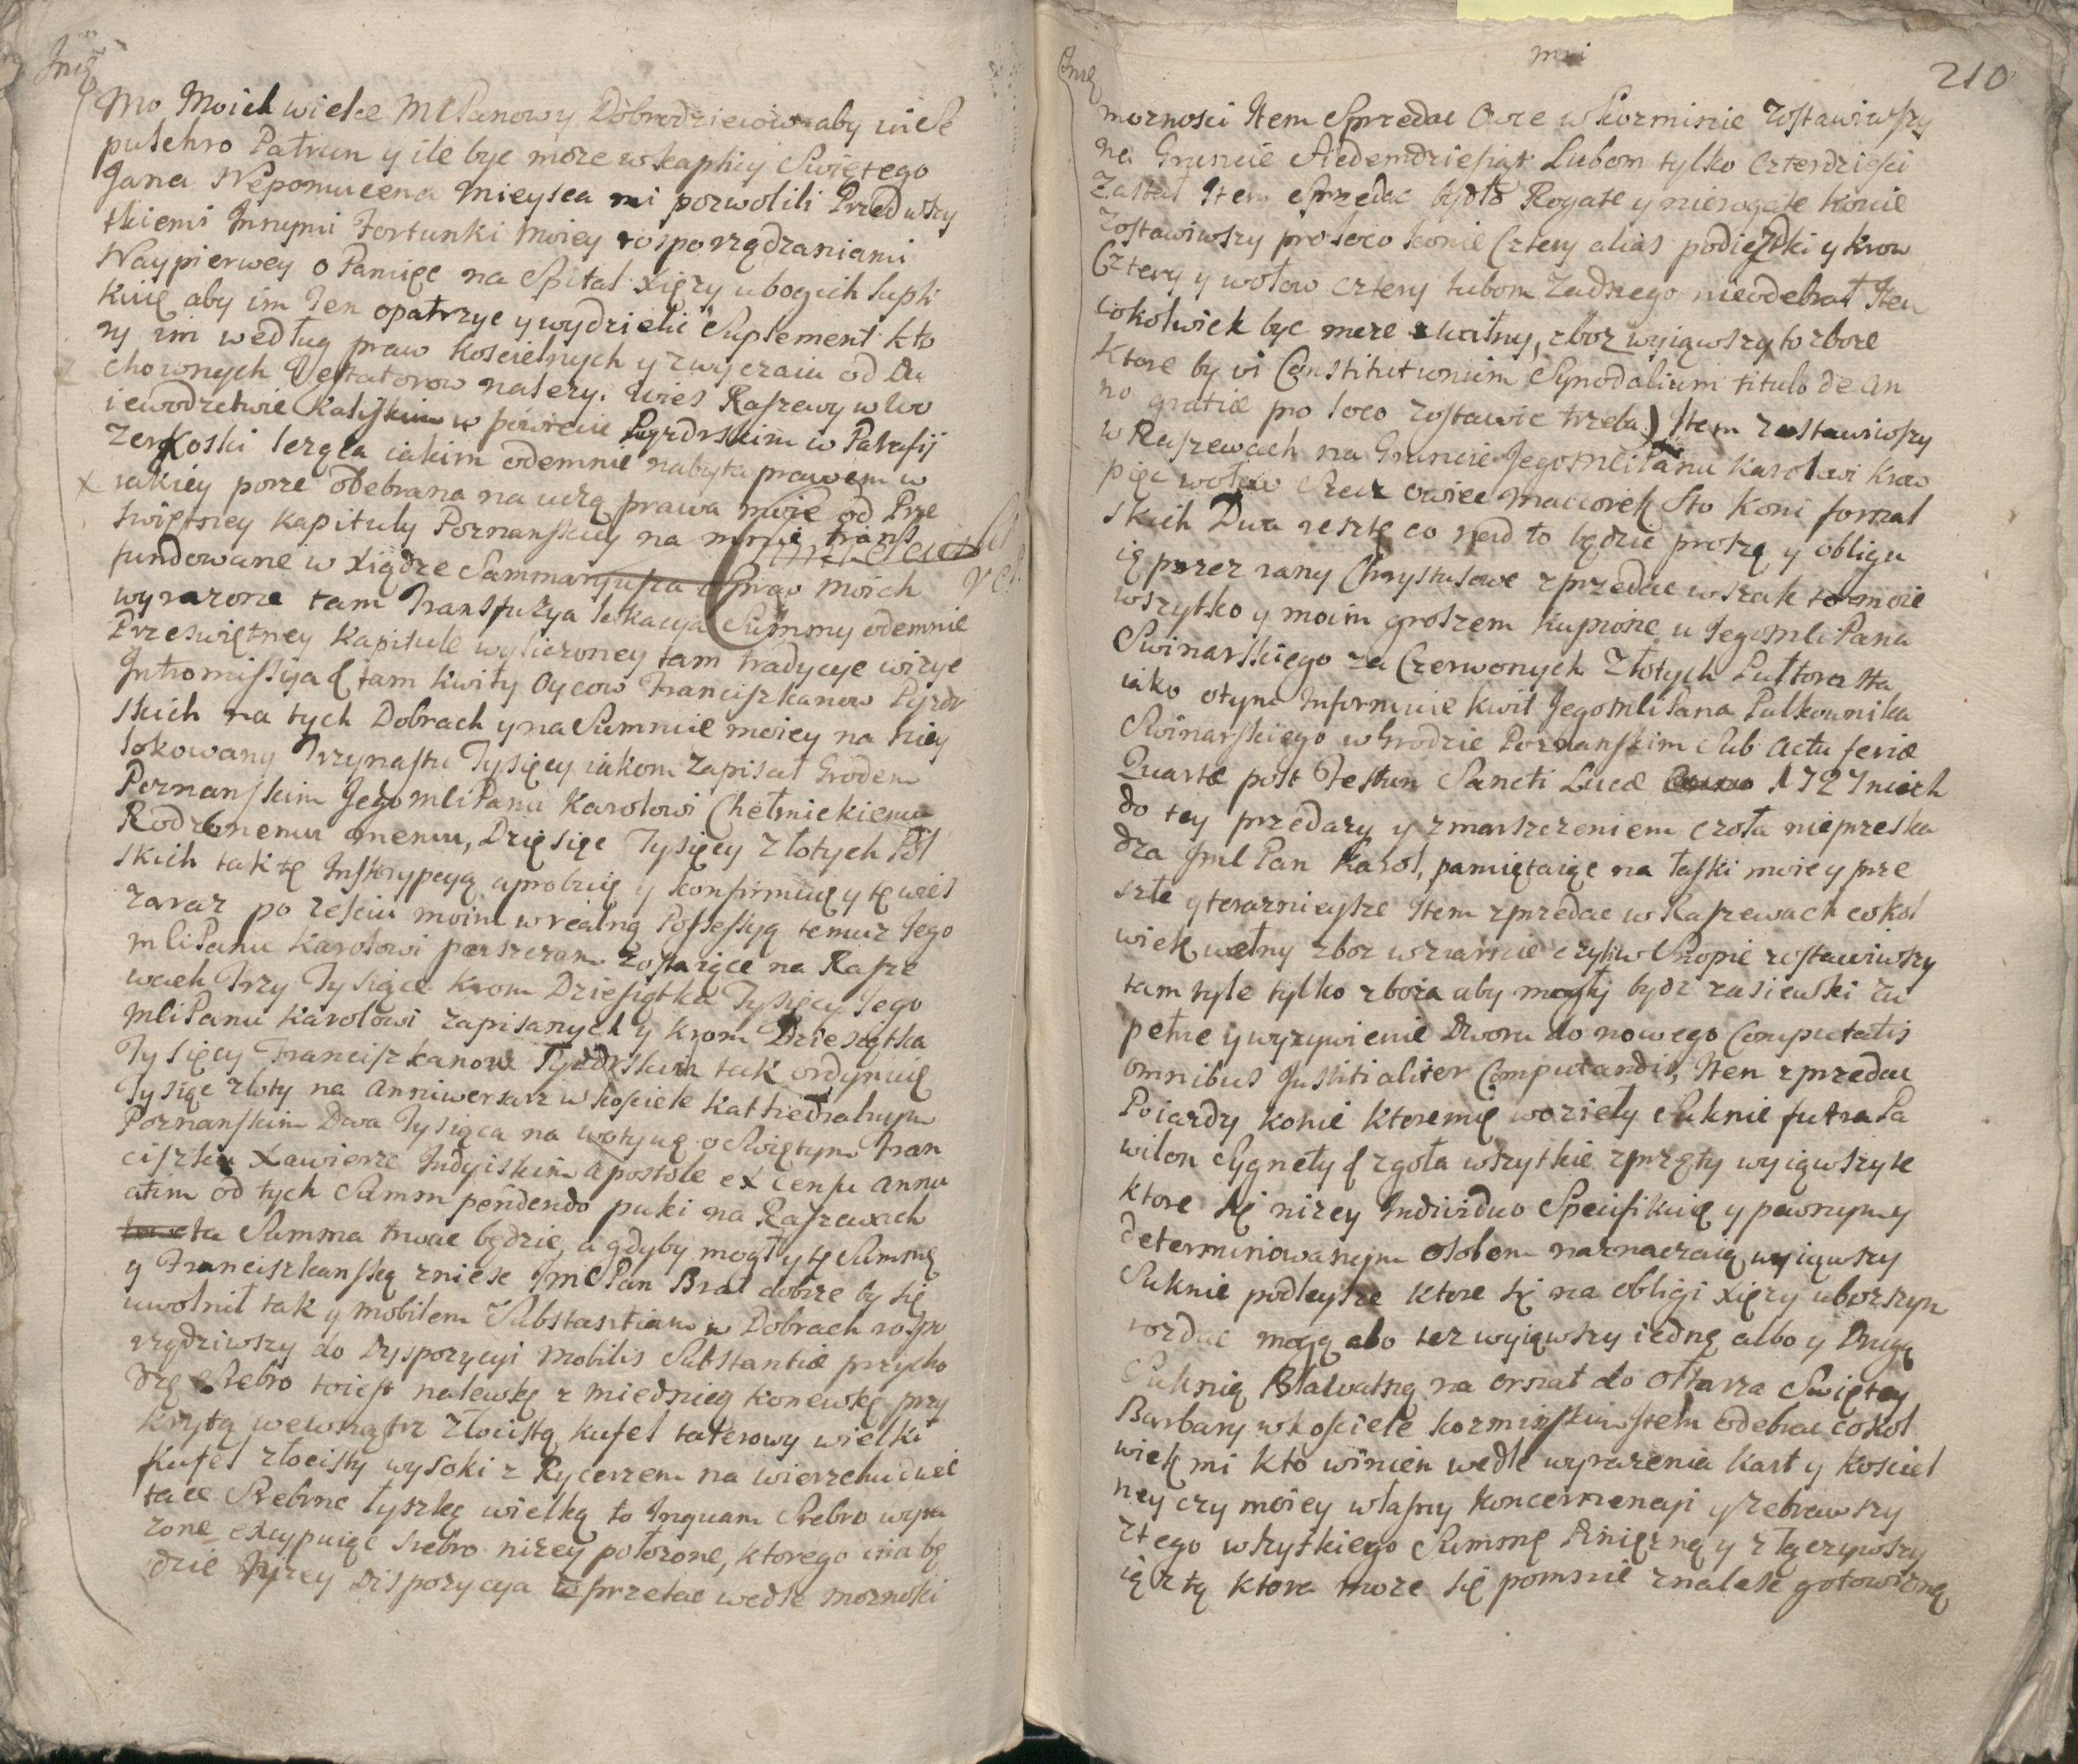 Jmę
Mo Moich wielce MCPanowy Dobrodzieiow aby in Se
pulchro Patrum y ile byc moze w kaplicy Swiętego
Jana Nepomucena mieysca mi pozwolili Przed wszy
tkiemi Innymi Fortunki moiey rosporządzaniami
Naypierwey o Pamięc na Spital Xięzy ubogich supli
kuię aby im Ten opatrzyc y wydzielic Suplement kto
ry im według praw koscielnych y zwyczaiu od Du
chownych Testatorow nalezy. Wies Raszewy w Wo
iewodztwie Kaliskim w powiecie Pyzdrskim w Parafij
Zerkoski lezącą iakim odemnie nabyta prawem w
x iakiey porze odebrana naucza prawa moie od Prze
Swiętney Kapituły Poznanskiey na mnie trans
fundowane w Xiądze Sammaryusza Spraw moich
wyrazone tam Transfuzya lokacya Summy odemnie
Przeswiętney Kapitule wyliczoney tam tradycye wizye
Intromissya & tam kwity Oycow Franciszkanow Pyzdr
skich na tych Dobrach y na Summie moiey na niey
lokowany Trzynastu Tysięcy iakom zapisał Grodem
Poznanskim JegomliPanu Karolowi Chełmickiemu
Rodzonemu memu, Dzięsięc Tysięcy Złotych Pol
skich tak tę Inskrypcyą aprobuię y konfirmuię y tę wies
zaraz po zesciu moim w realną Possessyą temuz Jego
mliPanu Karolowi puszczam zostaiące na Rasze
wach Trzy Tysiące krom Dziesiątka Tysięcy Jego
MliPanu Karolowi zapisanych y krom Dziesiątka
Tysięcy Franciszkanow Pyzdrskich tak ordynuię
Tysiąc złoty na anniwersarz w kosciele Kathedralnym
Poznanskim Dwa Tysiąca na wotywę o Swiętym Fran
ciszku Xawierze Indyiskim apostole ex censu annu
atim od tych Summ pendendo puki na Raszewach
ta Summa trwac będzie, a gdyby mogł y tę Summę
y Franciszkanską zniesc JmC Pan Brat dobrze by się
uwolnił tak y mobilem Substantiam w Dobrach rospo
rządziwszy do Dyspozycyi Mobilis Substantiæ przycho
dzę Srebro toiest nalewkę z miednicą konewkę przy
krytą wewnątrz złocistą kufel talerowy wielki
Kufel złocisty wysoki z Rycerzem na wierzchu dwie
tace Srebrne łyszkę wielką to Inquam Srebro wyra
zone excypuiąc srebro nizey położone, ktorego ina bę
dzie Nizey Dispozycya sprzedac wedle moznosci
mni
210
Jmę
moznosci Item Sprzedac Owce w Kozminie zostawiwszy
na Gruncie Siedemdziesiąt Lubom tylko Czterdziesci
Zastał Item Sprzedac bydło Rogate y nierogate konie
Zostawiwszy pro loco konie Cztery alias podiezdki y krow
Cztery y wołow cztery lubom Zadnego nieodebrał Item
cokolwiek byc moze wełny, zboz wyiąwszy to zboze
Ktore by vi Constitutionum Synodalium titulo de An
no gratiæ pro loco zostawic trzeba) Item zostawiwszy
w Raszewach na Gruncie JegomliPanu Karolowi krow
pięc wołow Szesc owiec maciorek Sto koni fornal
skich Dwa resztę co nad to będzie proszę y obligu
ię przez rany Chrystusowe zprzedac wszak to moie
wszytko y moim groszem kupione u JegomliPana
Swinarskiego za Czerwonych Złotych Pułtora sta
iako otym Informuie kwit JegomliPana Pułkownika
Swinarskiego w Grodzie Poznanskim Sub Actu feria
Quarta post Festum Sancti Lucæ 1727 niech
do tey przedazy y zmarszczeniem czoła nieprzeska
dza Jml Pan Karol, pamiętaiąc na łaski moie y prze
szłe y teraznieysze Item zprzedac w Raszewach cokol
wiek wełny zboz w ziarnie czyli w Snopie zostawiwszy
tam tyle tylko zboża aby mogły bydz zasiewki zu
pełne y wyzywienie Dworu do nowego Computatis
omnibus Justitialiter Computandis, Item zprzedac
Poiazdy konie ktoremię woziely Suknie futra Pa
wilon Sygnety & zgoła wszytkie zprzęty wyiąwszy te
ktore się nizey Individuo Specifikuię y pewnymy
determinowanym osobom naznaczaią wyiąwszy
Suknie podleysze ktore się na obligi Xięzy uboższym
rozdac maią abo tez wyiąwszy iednę albo y Drugą
Suknią Bławatną na ornat do Ołtarza Swiętey
Barbary w kosciele kozminskim Item odebrac cokol
wiek mi kto winien wedle wyrazenia kart y Kosciel
ney czy moiey własny koncernencyi y zebrawszy
z tego wszytkiego Summę Pinięzną y złączywszy
ią z tą ktora moze się pomnie znalesc gotowizną